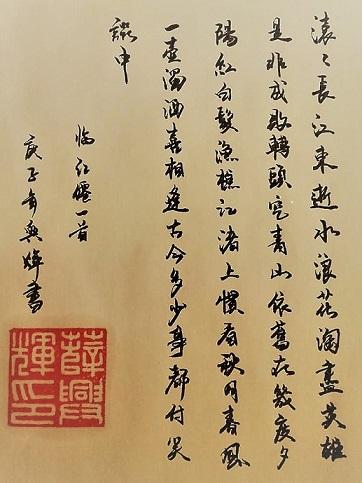 滚〻長江東逝水浪花淘盡英雄
是非成敗轉頭空青山依舊在幾度夕
陽紅白髮漁樵江渚上慣看秋月春風
一壺濁酒喜相逢古今多少事都付笑
談中
臨江僊一首
庚子年興煇書
薛興煇印